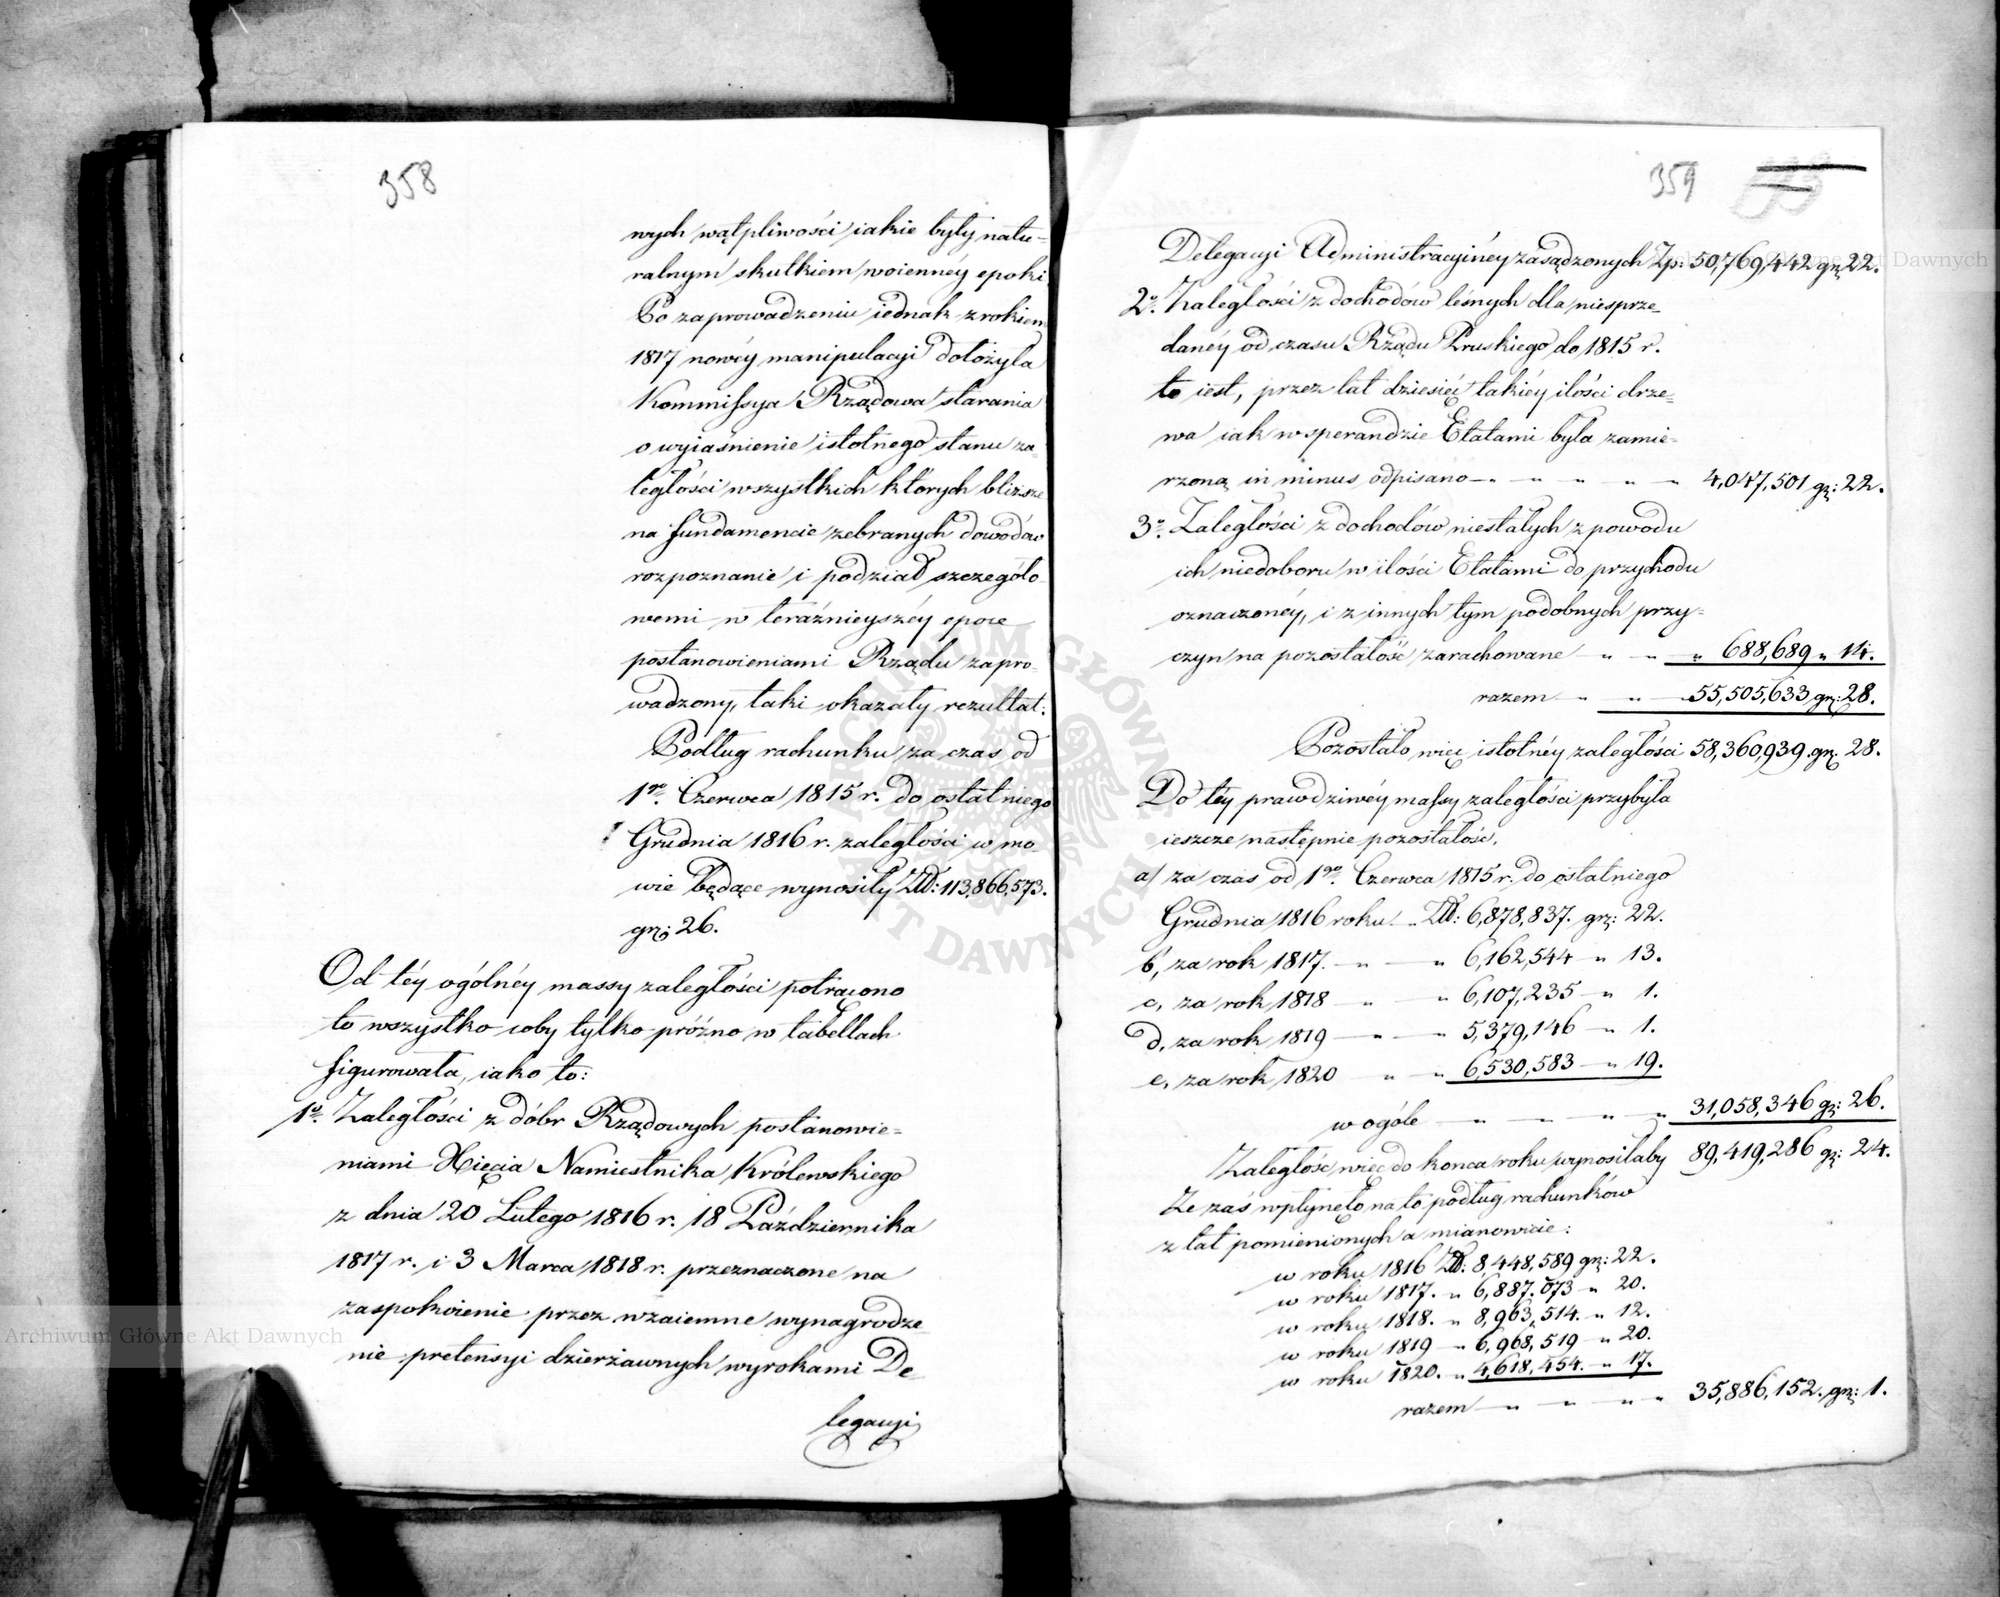 358
wych wątpliwości iakie były natu=
ralnym skutkiem woienney epoki
Po zaprowadzeniu iednak z rokiem
1817 nowéy manipulacyi dołożyła
Kommissya Rządowa starania
o wyiaśnienie istotnego stanu za=
ległości wszystkich których bliższe
na fundamencie zebranych dowodów
rozpoznanie i podział szczególo-
wemi w teraźnieyszéy epoce
postanowieniami Rządu zapro-
wadzony, taki okazały rezultat:
Podług rachunku za czas od
1go Czerwca 1815 r. do ostatniego
Grudnia 1816 r. zaległości w mo-
wie będące wynosiły Złł: 113,866,573.
gr: 26.
Od téy ogólnéy massy zaległości potrącono
to wszystko coby tylko próżno w tabellach
figurowała, iako to:
1o Zaległości z dóbr Rządowych postanowie=
niami Xięcia Namiestnika Królewskiego
z dnia 20 Lutego 1816 r. 18 Października
1817 r. i 3 Marca 1818 r. przeznaczone na
zaspokoienie przez wzaiemne wynagrodze=
nie pretensyi dzierżawnych wyrokami De=
legacyi
359
Delegacyi Administracyinéy zasądzonych Zp: 50,769,442 gr 22.
2o Zaległości z dochodów leśnych dla niesprze=
danéy od czasu Rządu Pruskiego do 1815 r.
to iest, przez lat dziesięć takiéy ilości drze=
wa iak w sperandzie Etatami była zamie=
rzoną in minus odpisano — " — " " " — 4,047,501 gr: 22.
3o Zaległości z dochodów niestałych z powodu
ich niedoboru w ilości Etatami do przychodu
oznaczonéy, i z innych tym podobnych przy=
czyn na pozostałość zarachowane — " — " 688,689 " 14.
razem — " — " — 55,505,633 gr: 28.
Pozostało więc istotnéy zaległości 58,360,939 gr. 28.
Do téy prawdziwéy massy zaległości przybyła
ieszcze następnie pozostałość,
a/ za czas od 1go Czerwca 1815 r. do ostatniego
Grudnia 1816 roku — Złł: 6,878,837. gr: 22.
b, za rok 1817. — " — " 6,162,544 — " 13.
c, za rok 1818 — " — " 6,107,235 — " 1.
d, za rok 1819 — " — " 5,379,146 — " 1.
e, za rok 1820 " — " 6,530,583 — " 19.
w ogóle — " — " — " 31,058,346 gr: 26.
Zaległość więc do konca roku wynosiłaby 89,419,286 gr: 24.
Ze zaś wpłynęło na to podług rachunków
z lat pomienionych a mianowicie:
w roku 1816 Złł: 8,448,589 gr: 22.
w roku 1817. " 6,887,073 — " 20.
w roku 1818. " 8,963,514. — " 12.
w roku 1819 — " 6,968,519 — " 20.
w roku 1820. — " 4,618,454. — " 17.
razem — " — " — " — " 35,886,152. gr: 1.
Archiwum Główne Akt Dawnych
Archiwum Główne Akt Dawnych
ARCHIWUM GŁÓWNE AKT DAWNYCH